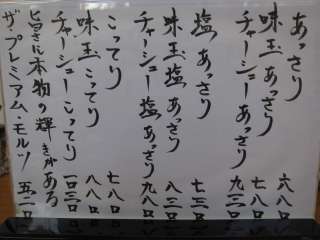 あっさり 六八〇
味玉あっさり 七八〇
チャーシューあっさり 九三〇
塩あっさり 七三〇
味玉塩あっさり 八三〇
チャーシュー塩あっさり 九八〇
こってり 七八〇
味玉こってり 八八〇
チャーシューこってり 一〇三〇
旨さに本物の輝きがある
ザ・プレミアム・モルツ 五二〇